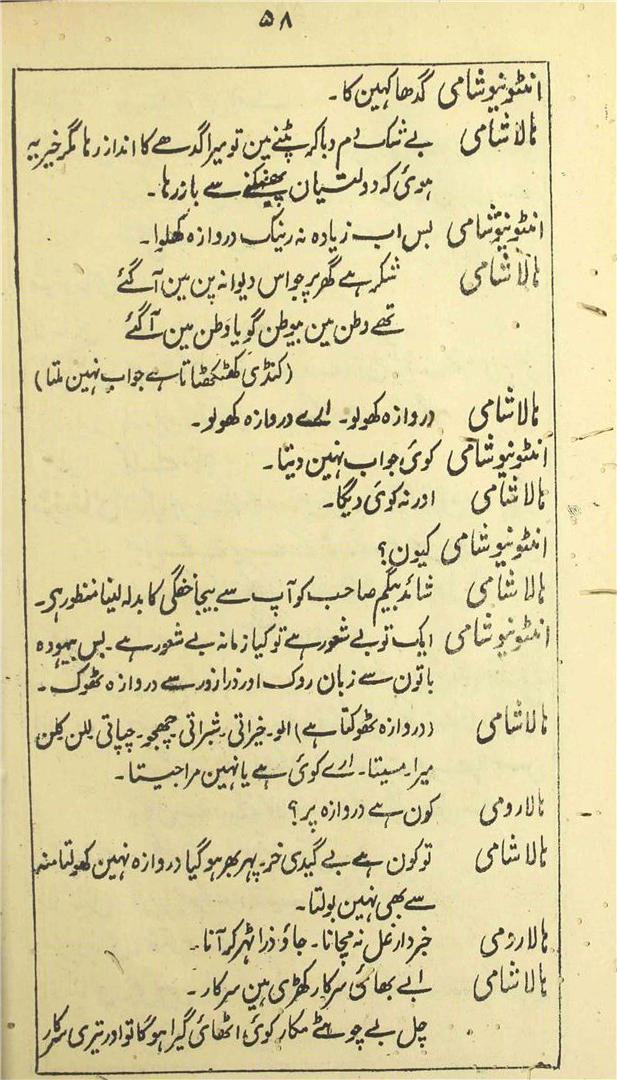 ۵۸
انٹونیوشامی گدھا کہین کا۔
ہالاشامی بے شک دم دباکر پٹنے مین تو میرا گدھے کا انداز رہا مگر خیر یہ
ہوئی کہ دولتیان پھینکنے سے باز رہا۔
انٹونیوشامی بس اب زیادہ نہ رینک دروازہ کھلوا۔
ہالاشامی شکر ہے گھر پر حواس دیوانہ پن مین آگئے
تھے وطن مین بیوطن گویا وطن مین آگئے
(کنڈی کھٹکھٹاتا ہے جواب نہین ملتا)
ہالاشامی دروازہ کھولو۔ ابے دروازہ کھولو۔
انٹونیوشامی کوئی جواب نہین دیتا۔
ہالاشامی اور نہ کوئی دیگا۔
انٹونیوشامی کیون؟
ہالاشامی شائد بیگم صاحب کو آپ سے بیجا خفگی کا بدلہ لینا منظور ہی۔
انٹونیوشامی ایک تو بے شعور ہے تو کیا زمانہ بے شعور ہے۔ بس بیہودہ
باتون سے زبان روک اور ذرا زور سے دروازہ ٹھوک۔
ہالاشامی (دروازہ ٹھوکتا ہے) الو۔ خیراتی۔ شبراتی۔ چھجو۔ چپاتی۔ للن کلن
میرا۔ مسیتا۔ ارے کوئی ہے یا نہین مرا جیتا۔
ہالارومی کون ہے دروازہ پر؟
ہالاشامی تو کون ہے بے گیدی خر۔ پہر بھر ہوگیا دروازہ نہین کھولتا منہ
سے بھی نہین بولتا۔
ہالارومی خبردار غل نہ مچانا۔ جاؤ ذرا ٹہر کر آنا۔
ہالاشامی ابے بھائی سرکار کھڑی ہین سرکار۔
چل بے چوٹٹے مکار کوئی اٹھائی گیرا ہوگا تو اور تیری سرکار